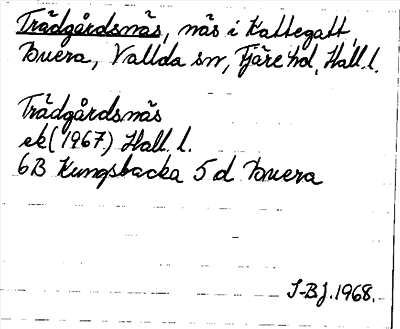 Trädgårdsnäs, näs i Kattegatt,
Buera, Vallda sn, Fjäre hd, Hall. l.
Trädgårdsnäs
ek (1967) Hall. l.
6B Kungsbacka 5 d Buera
I-BJ. 1968.